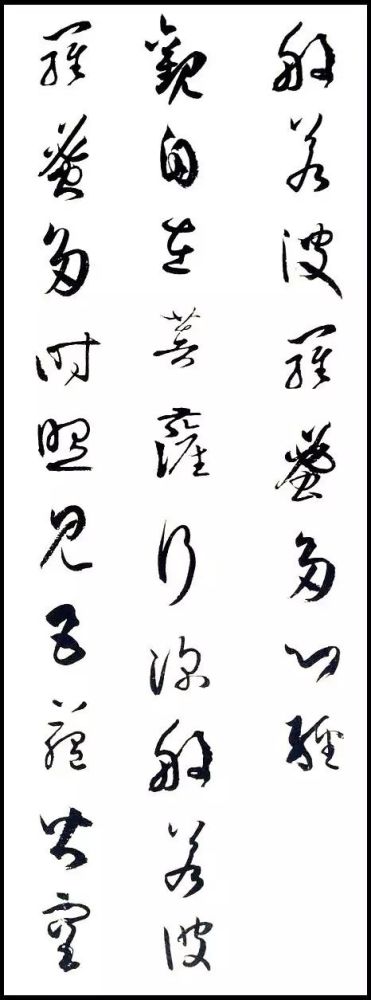 般若波羅蜜多心經
觀自在菩薩行深般若波
羅蜜多時照見五蘊皆空